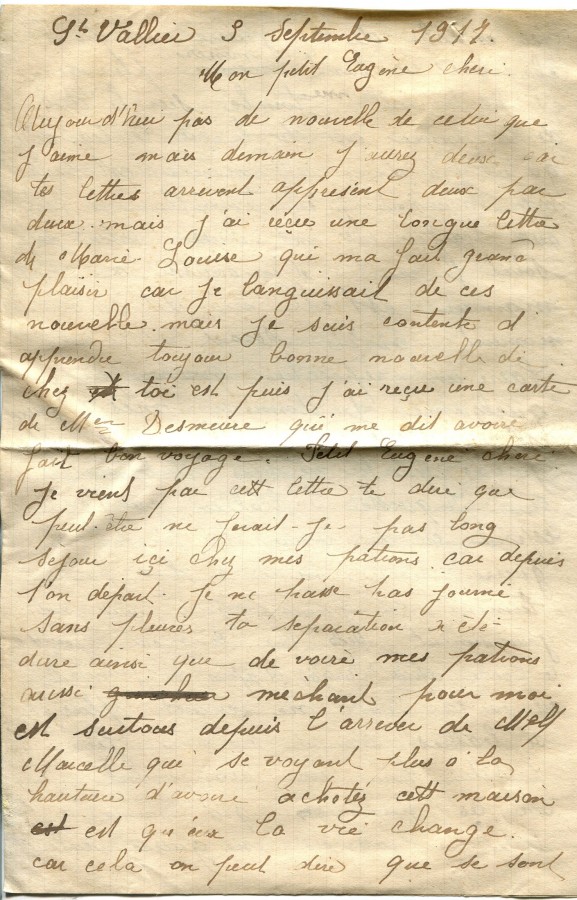 St Vallier 3 Septembre 1917.
Mon petit Eugène cheri.
Aujourd'hui pas de nouvelle de celui que
j'aime mais demain j'aurez deux car
tes lettres arrivent appresent deux par
deux. mais j'ai reçue une longue lettre
de Marie Louise qui ma fait grand
plaisir car je languissait de ces
nouvelle. mais je suis contente d
apprendre toujour bonne nouvelle de
chez toi est puis j'ai reçu une carte
de Mer Desmeure qui me dit avoire
fait bon voyage. Petit Eugène cheri
je viens par cett lettre te dire que
peut-être ne ferait-je pas long
séjour içi chez mes patrons car depuis
t'on depart. Je ne passe pas journé
sans pleures ta separation a été
dure ainsi que de voire mes patrons
aussi méchant pour moi
est surtous depuis l'arrever de Mell
Marcelle qui se voyant plus à la
hauteure d'avoire achotéz cett maison
est qu'eux la vie change.
car cela on peut dire que se sont